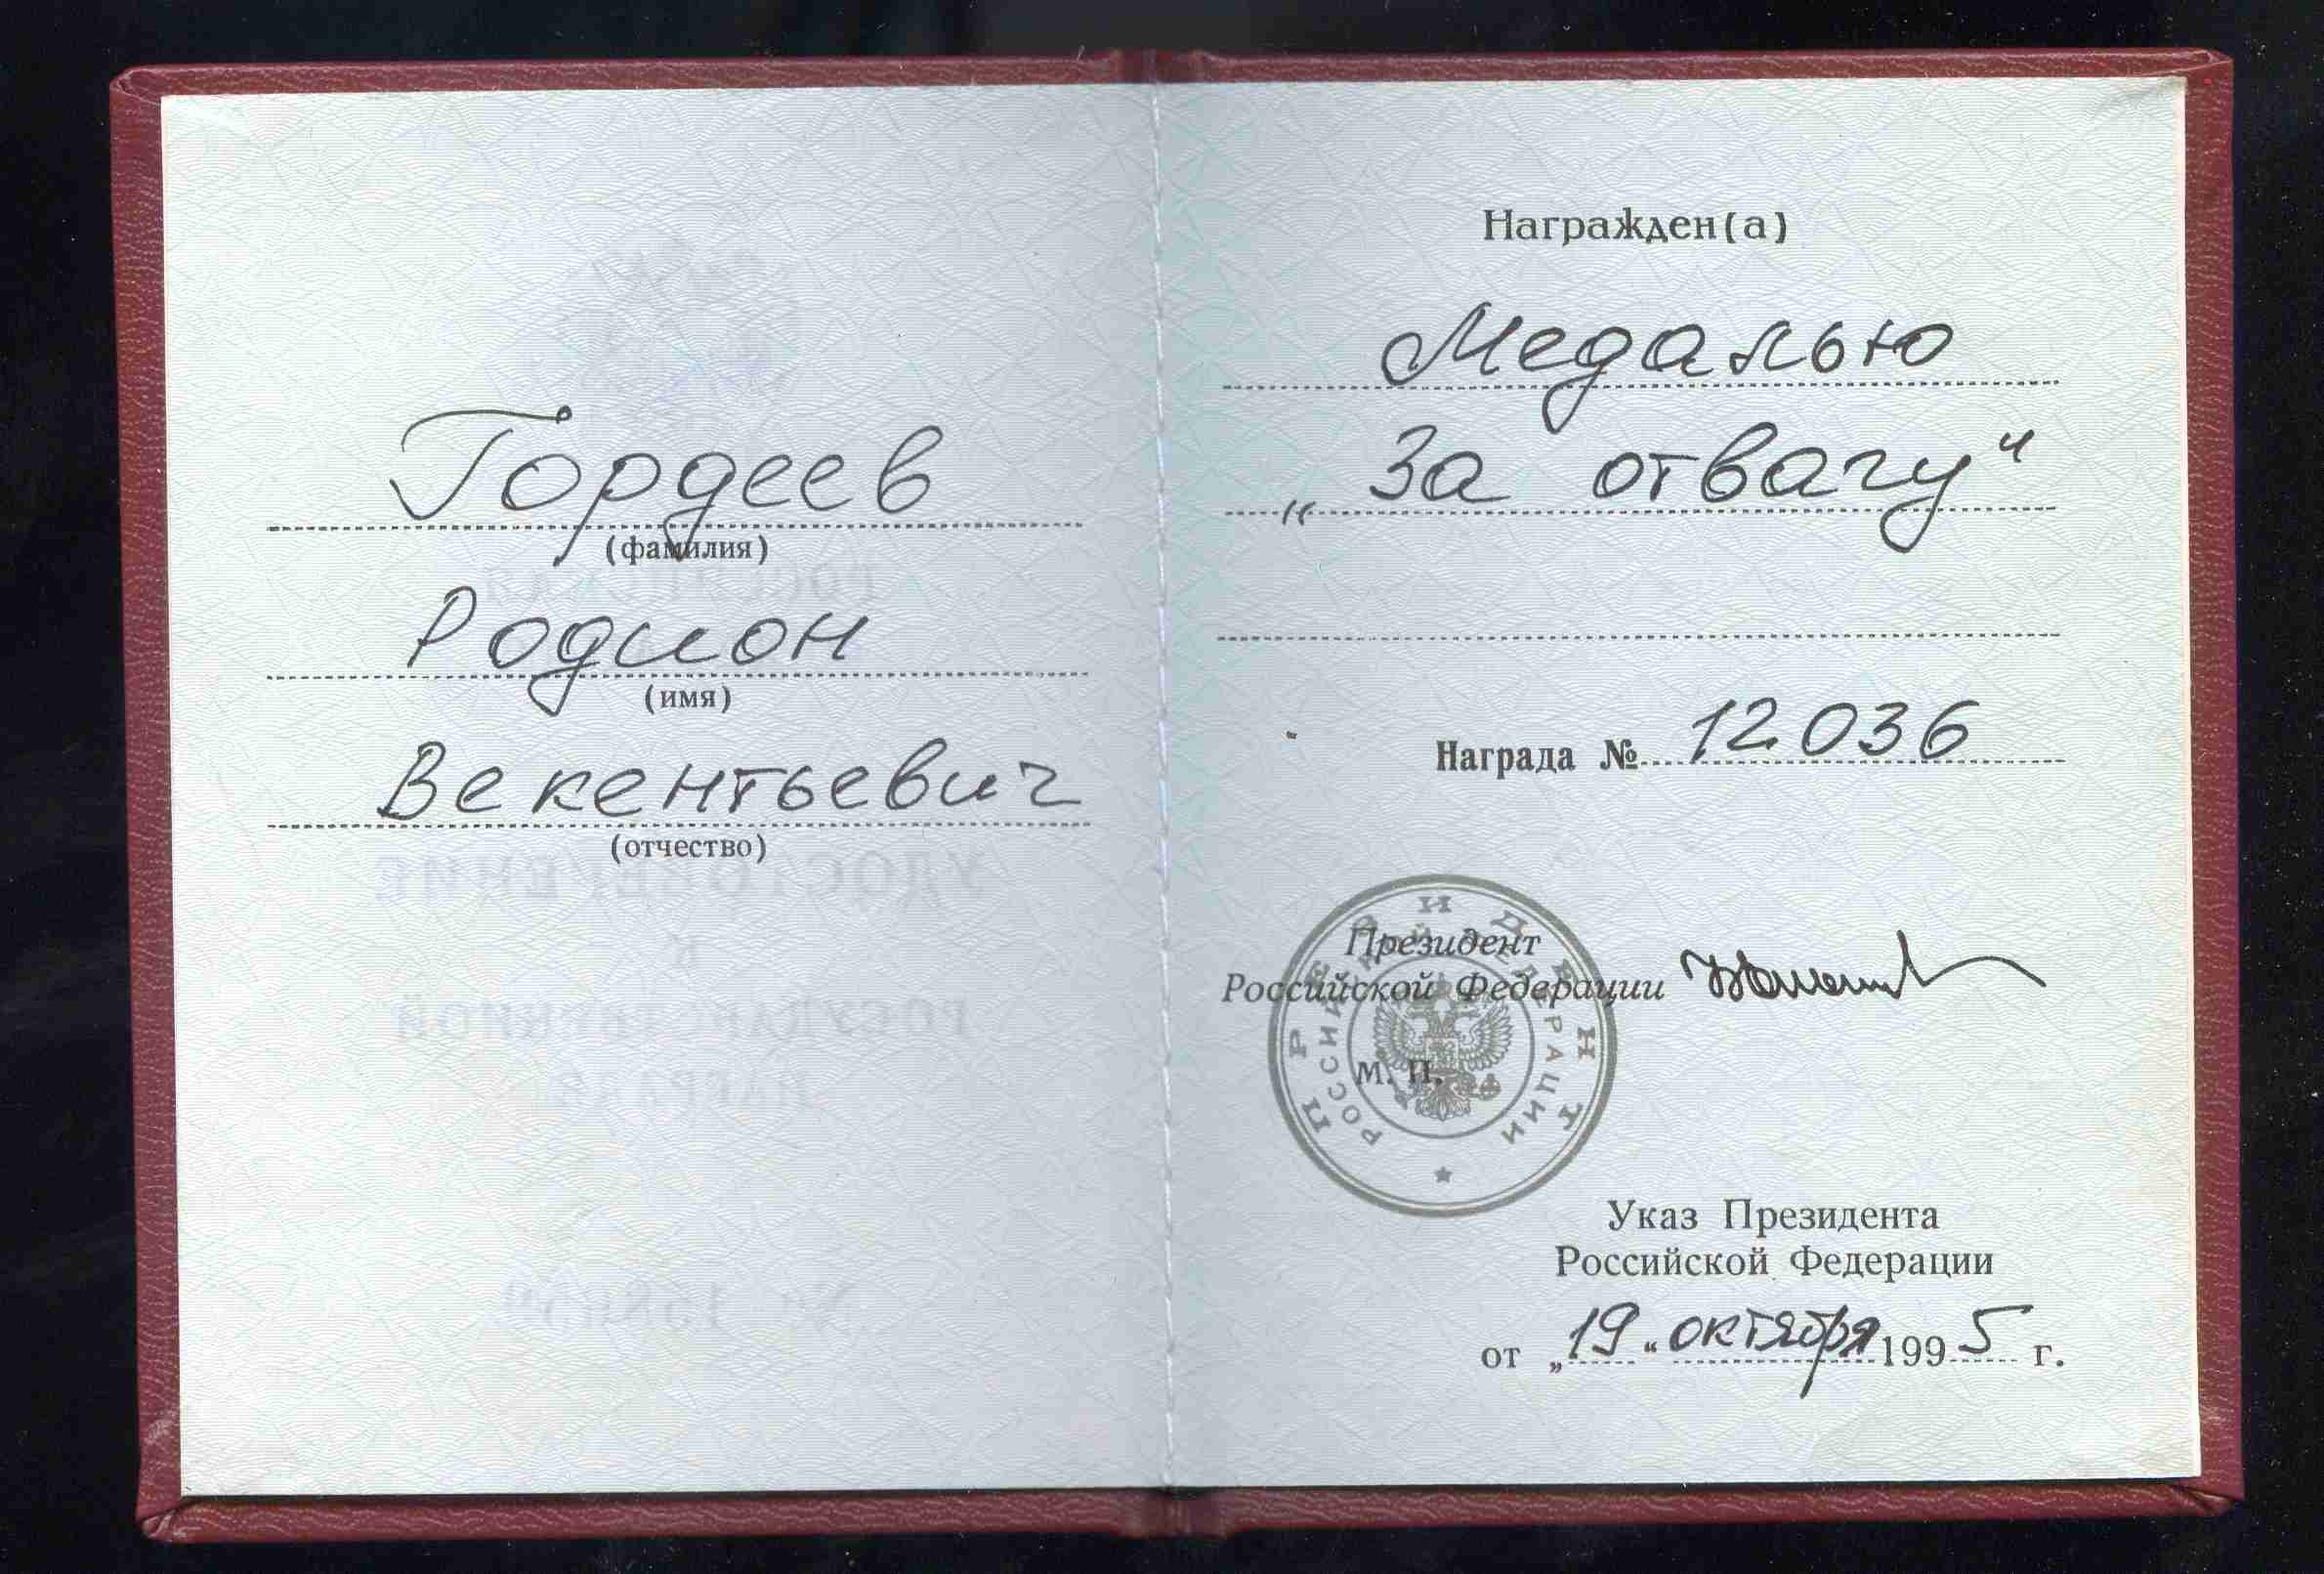 Гордеев
(фамилия)
Родион
(имя)
Векентьевич
(отчество)
Награжден(а)
Медалью
„За отвагу“
Награда № 12036
Президент
Российской Федерации
М. П.
ПРЕЗИДЕНТ
РОССИЙСКОЙ ФЕДЕРАЦИИ
Указ Президента
Российской Федерации
от „19“ октября 1995 г.